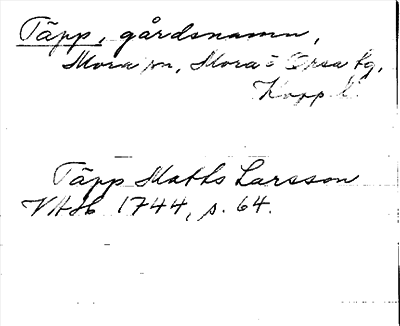 Täpp, gårdsnamn,
Mora sn, Mora o Orsa tg,
Kopp. l.
Täpp Maths Larsson
VAH 1744, s. 64.